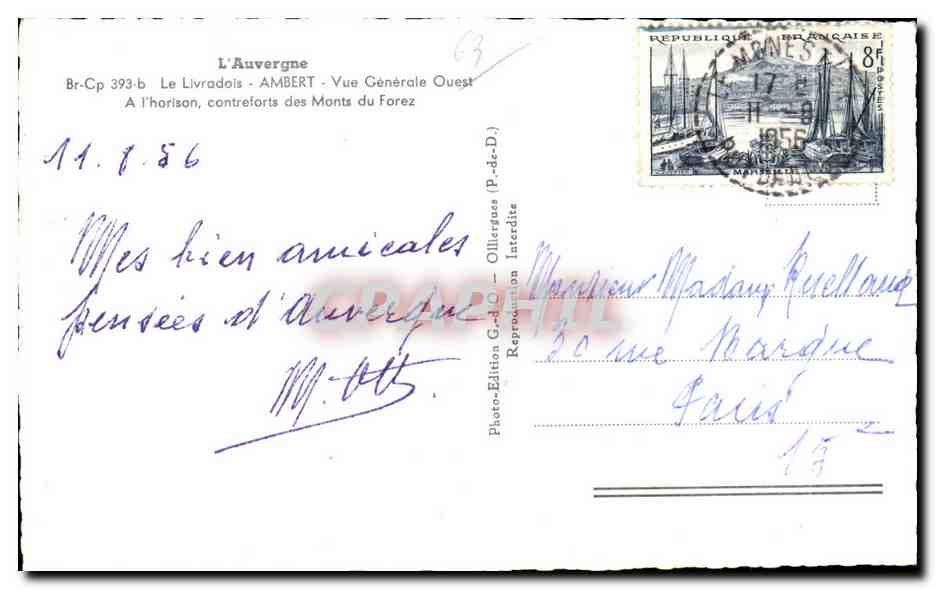 63
L'Auvergne
Br-Cp 393-b Le Livradois - AMBERT - Vue Générale Ouest
A l'horison, contreforts des Monts du Forez
11.8.56
Mes bien amicales
pensées d'Auvergne
M. Ott
Photo-Edition G.-d'O. - Olliergues (P.-de-D.)
Reproduction Interdite
RÉPUBLIQUE FRANÇAISE
8F
POSTES
MARSEILLE
17
11 -8
1956
Monsieur Madame
30 rue
Paris
CPAPHIL